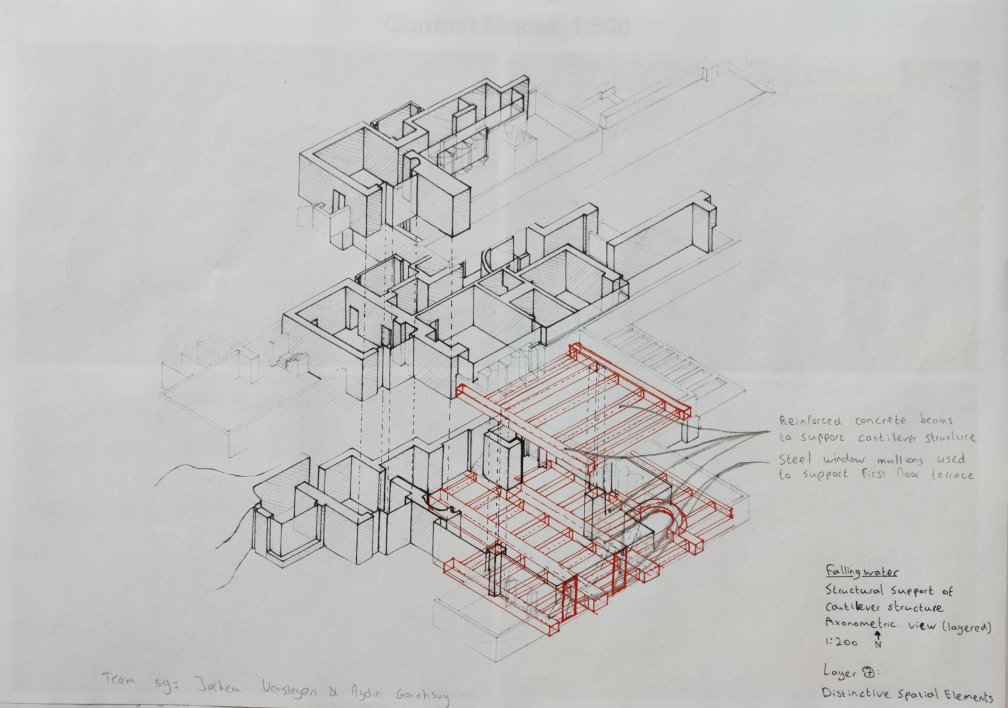 Context Model 1:500
Reinforced concrete beams
to support cantilever structure
Steel window mullions used
to support first floor terrace
Fallingwater
Structural support of
cantilever structure
Axonometric view (layered)
1:200 N
Layer 7:
Distinctive Spatial Elements
Team 59: Jochem Versteyen & Aydin